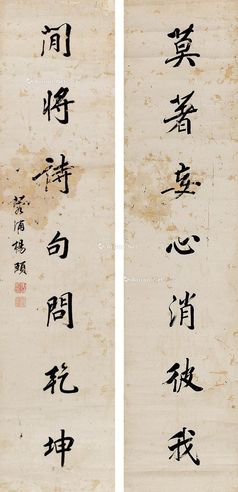 莫著妄心消彼我
閒將詩句問乾坤
蓉浦楊頤